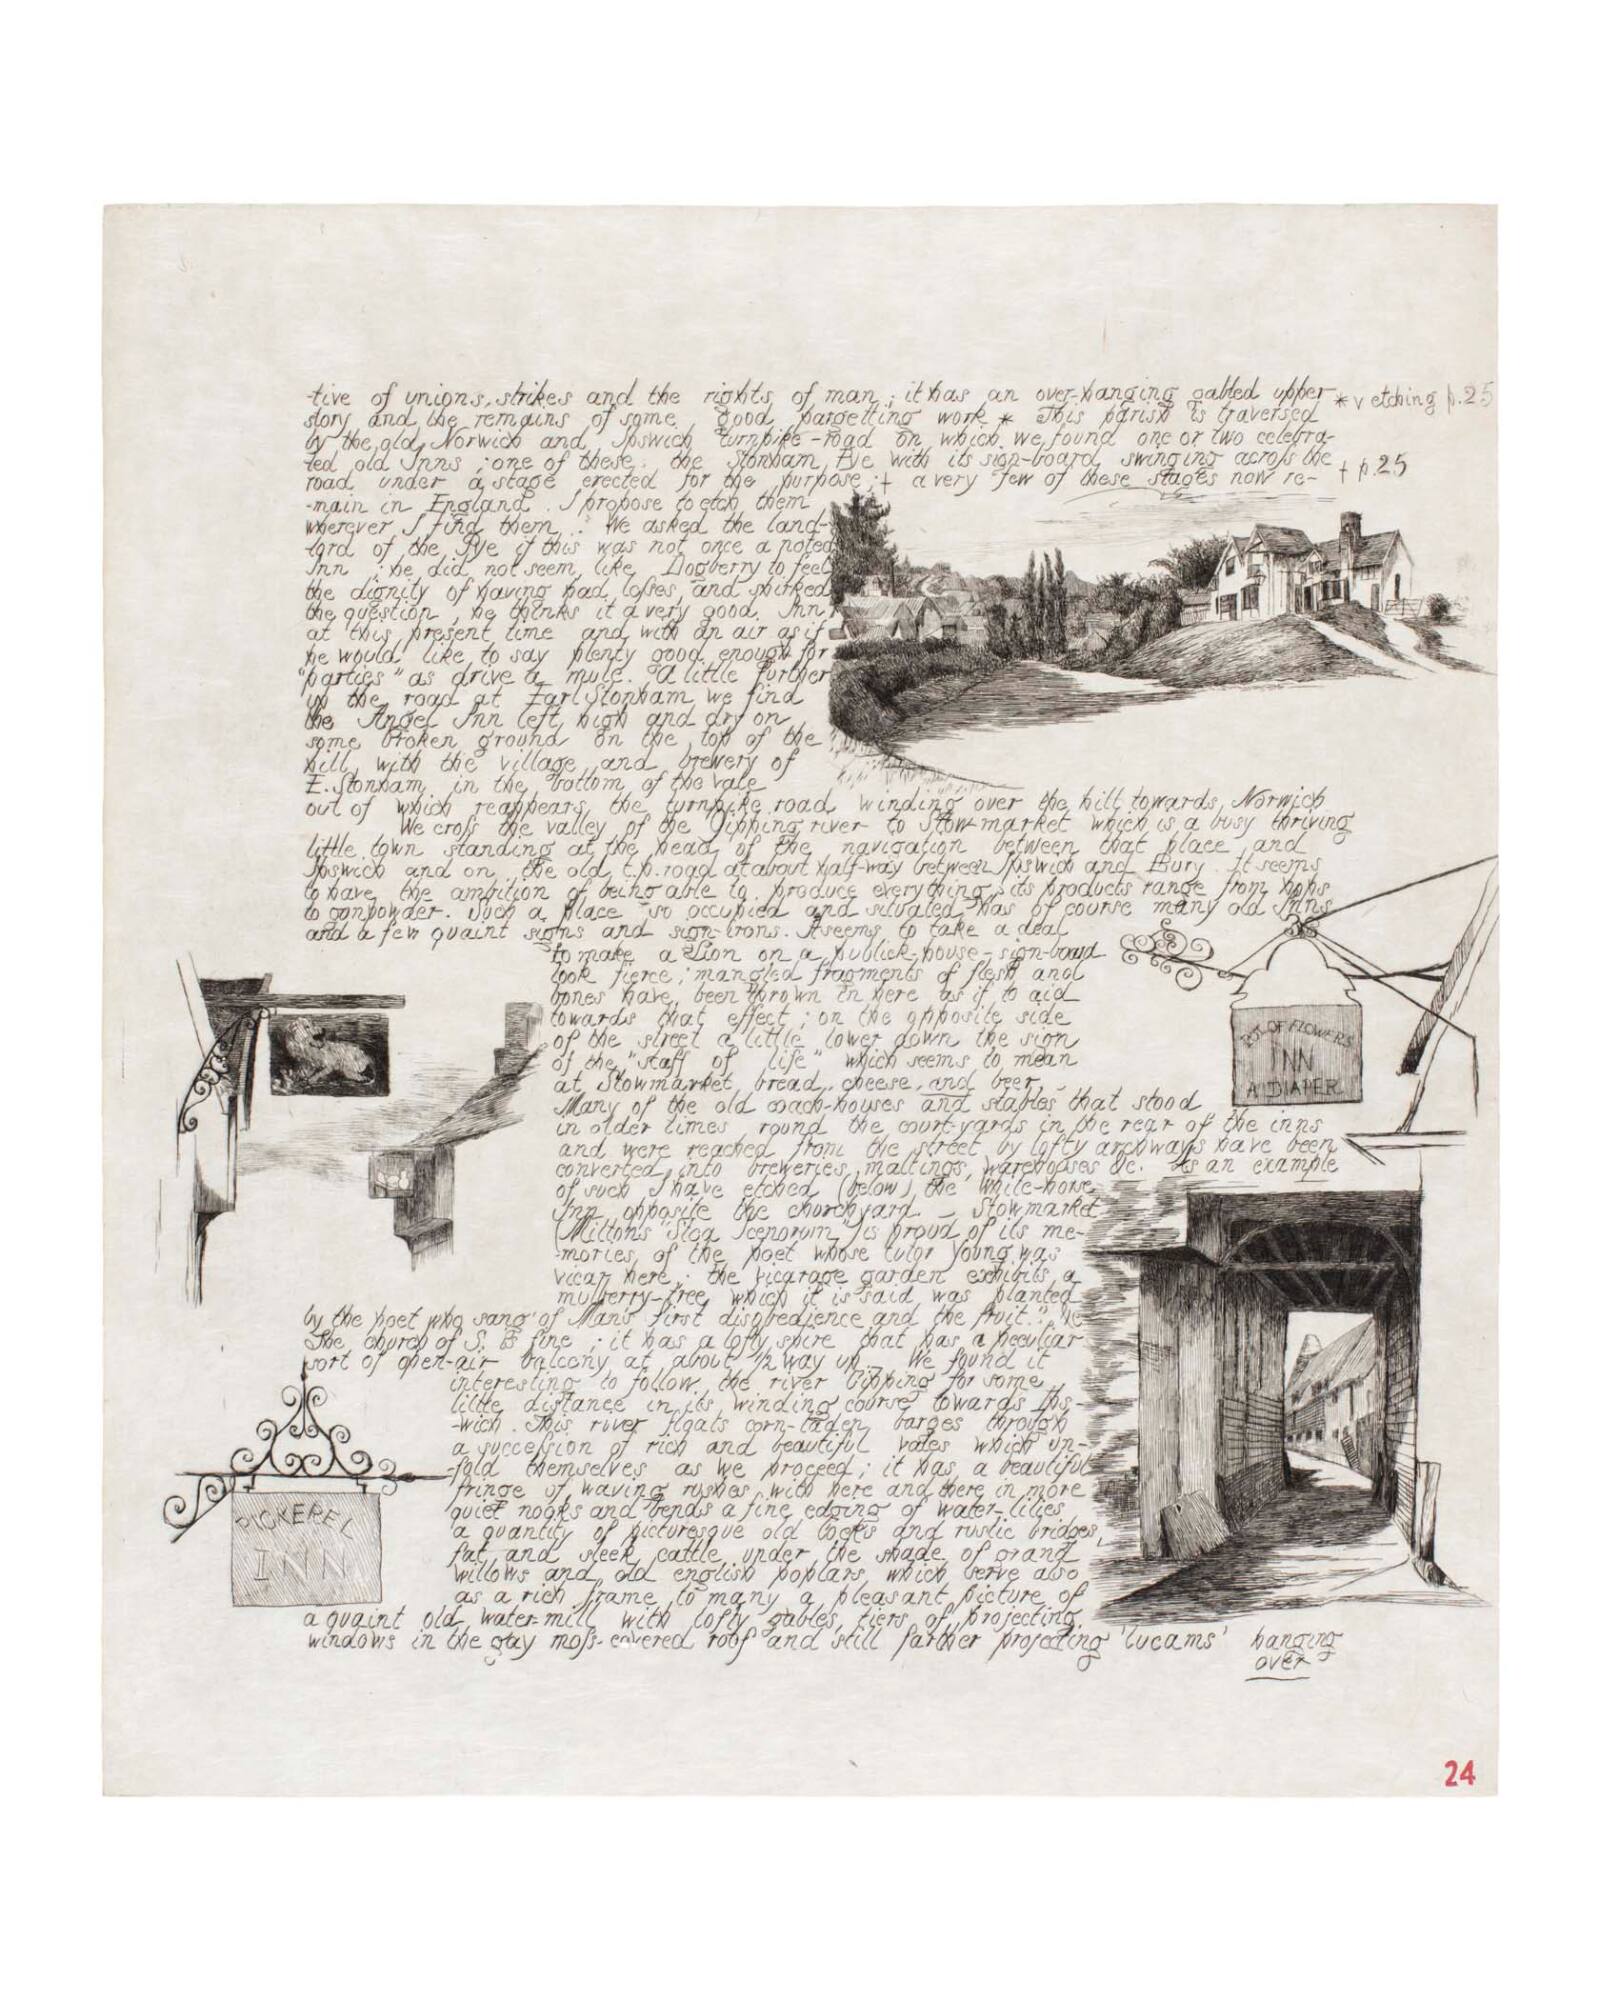 -tive of unions, strikes and the rights of man ; it has an over-hanging gabled upper * v etching p.25
story and the remains of some good pargetting work * This parish is traversed
by the old Norwich and Ipswich turnpike-road on which we found one or two celebra-
ted old Inns ; one of these the Stonham Pye with its sign-board swinging across the
road under a stage erected for the purpose ; † a very few of these stages now re- † p.25
-main in England . I propose to etch them
wherever I find them . We asked the land-
lord of the Pye if this was not once a noted
Inn ; he did not seem like Dogberry to feel
the dignity of having had losses and shirked
the question , he thinks it a very good Inn
at this present time and with an air as if
he would like to say plenty good enough for
"parties" as drive a mule. A little further
up the road at Earl Stonham we find
the Angel Inn left high and dry on
some broken ground on the top of the
hill, with the village and brewery of
E. Stonham in the bottom of the vale
out of which reappears the turnpike road winding over the hill towards Norwich
We cross the valley of the Gipping river to Stow-market which is a busy thriving
little town standing at the head of the navigation between that place and
Ipswich and on the old t.p. road at about half-way between Ipswich and Bury . It seems
to have the ambition of being able to produce everything , its products range from hops
to gunpowder. Such a place so occupied and situated has of course many old Inns
and a few quaint signs and sign-irons. It seems to take a deal
to make a Lion on a publick-house-sign-board
look fierce ; mangled fragments of flesh and
bones have been thrown in here as if to aid
towards that effect ; on the opposite side
of the street a little lower down the sign
of the "staff of life" which seems to mean
at Stowmarket bread, cheese, and beer
Many of the old coach-houses and stables that stood
in older times round the court-yards in the rear of the inns
and were reached from the street by lofty archways have been
converted into breweries, maltings, warehouses &c. As an example
of such I have etched (below) the White-horse
Inn opposite the churchyard _ Stowmarket
(Milton's "Stoa Icenorum") is proud of its me-
-mories of the poet whose tutor Young was
vicar here ; the vicarage garden exhibits a
mulberry-tree which it is said was planted
by the poet who sang "of Man's first disobedience and the fruit." &c
The church of S. is fine ; it has a lofty spire that has a peculiar
sort of open-air balcony at about 1/2 way up _ We found it
interesting to follow the river Gipping for some
little distance in its winding course towards Ips-
-wich . This river floats corn-laden barges through
a succession of rich and beautiful vales which un-
-fold themselves as we proceed ; it has a beautiful
fringe of waving rushes with here and there in more
quiet nooks and bends a fine edging of water-lilies
a quantity of picturesque old locks and rustic bridges,
fat and sleek cattle under the shade of grand
willows and old english poplars which serve also
as a rich frame to many a pleasant picture of
a quaint old water-mill with lofty gables, tiers of projecting
windows in the gay moss-covered roof and still farther projecting 'lucams' hanging
over
POT OF FLOWERS
INN
A. DIAPER
PICKEREL
INN
24